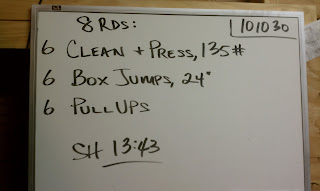 8 RDS:
101030
6 CLEAN + PRESS, 135#
6 BOX JUMPS, 24"
6 PULLUPS
SH 13:43